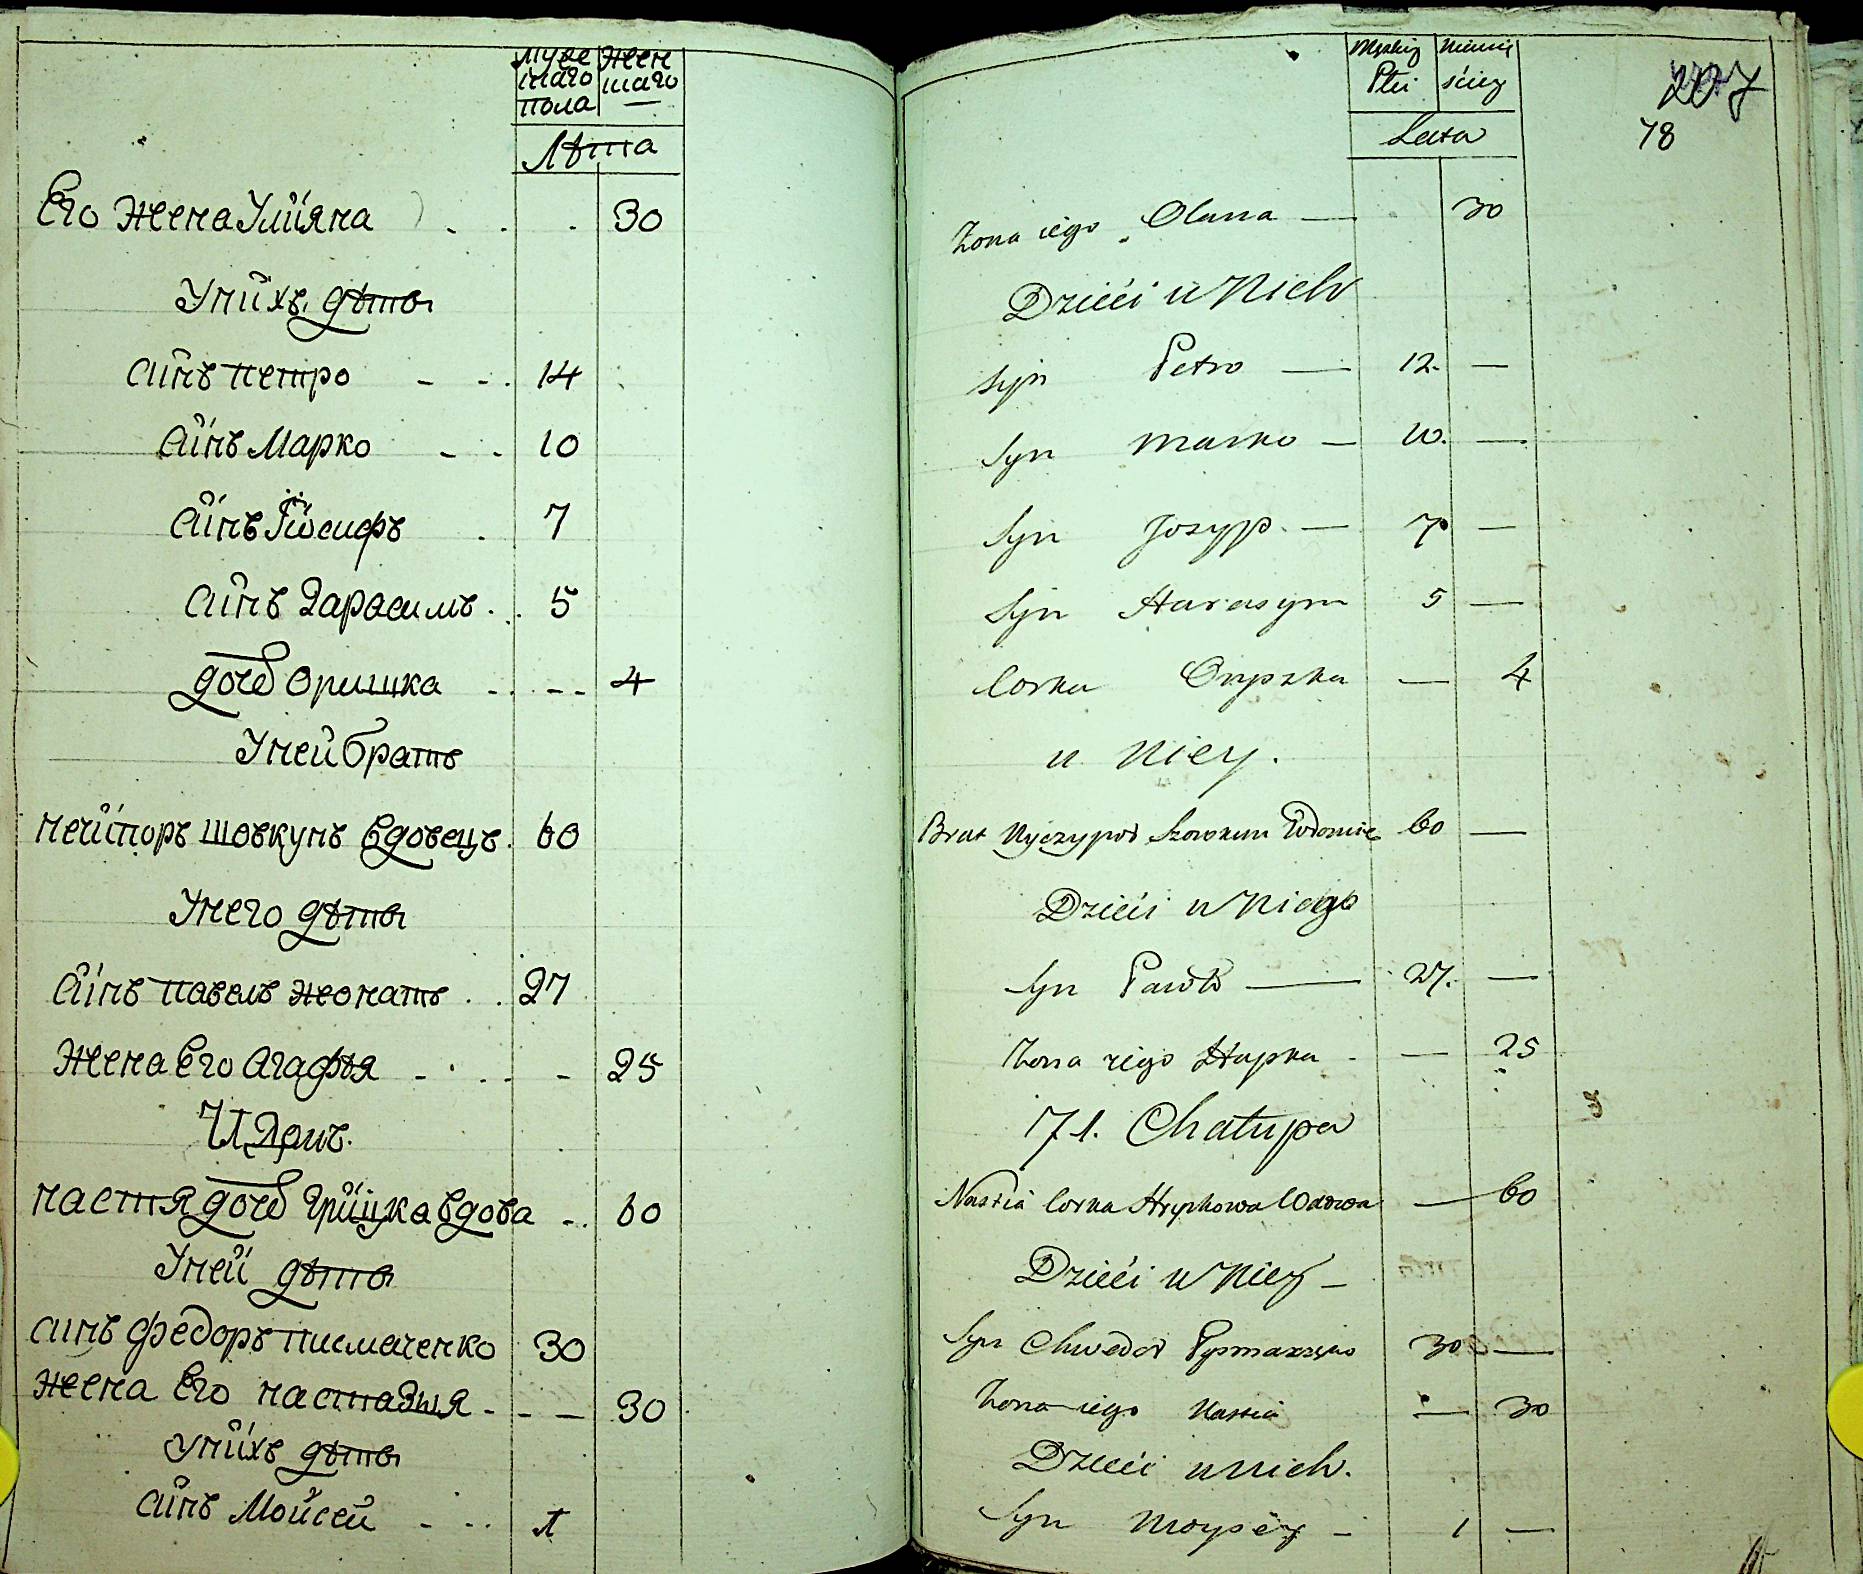 Муже Жен
скаго скаго
пола —
Лѣта
Его жена Улияна . . . 30
Унихъ дѣти
синъ петро - - . 14
Синъ Марко - . 10
Синъ Иосифъ . 7
Синъ Гарасимъ . . 5
дочь Оришка - . - - 4
Уней братъ
нечипоръ шовкунъ вдовецъ . 60
Унего дѣти
Синъ павелъ жонатъ . . 27
Жена Его Агафія - . . . - 25
Дом.
настя дочь грицка вдова - . 60
Уней дѣти
синъ федоръ писмаченко 30
жена Его настазия - - — 30
Унихъ дѣти
Синъ Мойсей - . . 1
Męzkiey Niewie
Płci śćiey
Lata
207
78
Zona iego Olana — 30
Dzieći u Nich
Syn Petro — 12. —
Syn Marko — 10. —
Syn Jozyp. — 7 —
Syn Harasym 5 —
Corka Oryszka — 4
u Niey.
Brat Nyczypor Szowkun Wdowiec 60 —
Dzieći u Niego
Syn Pawło — 27. —
Zona iego Hapka - — 25
71. Chałupa
Nastia Corka Hryckowa Wdowa — 60
Dzieći u Niey —
Syn Chwedor Pysmaczęko 30 —
Zona iego Nastia — 30
Dzieći u nich.
Syn Moysey — 1 —